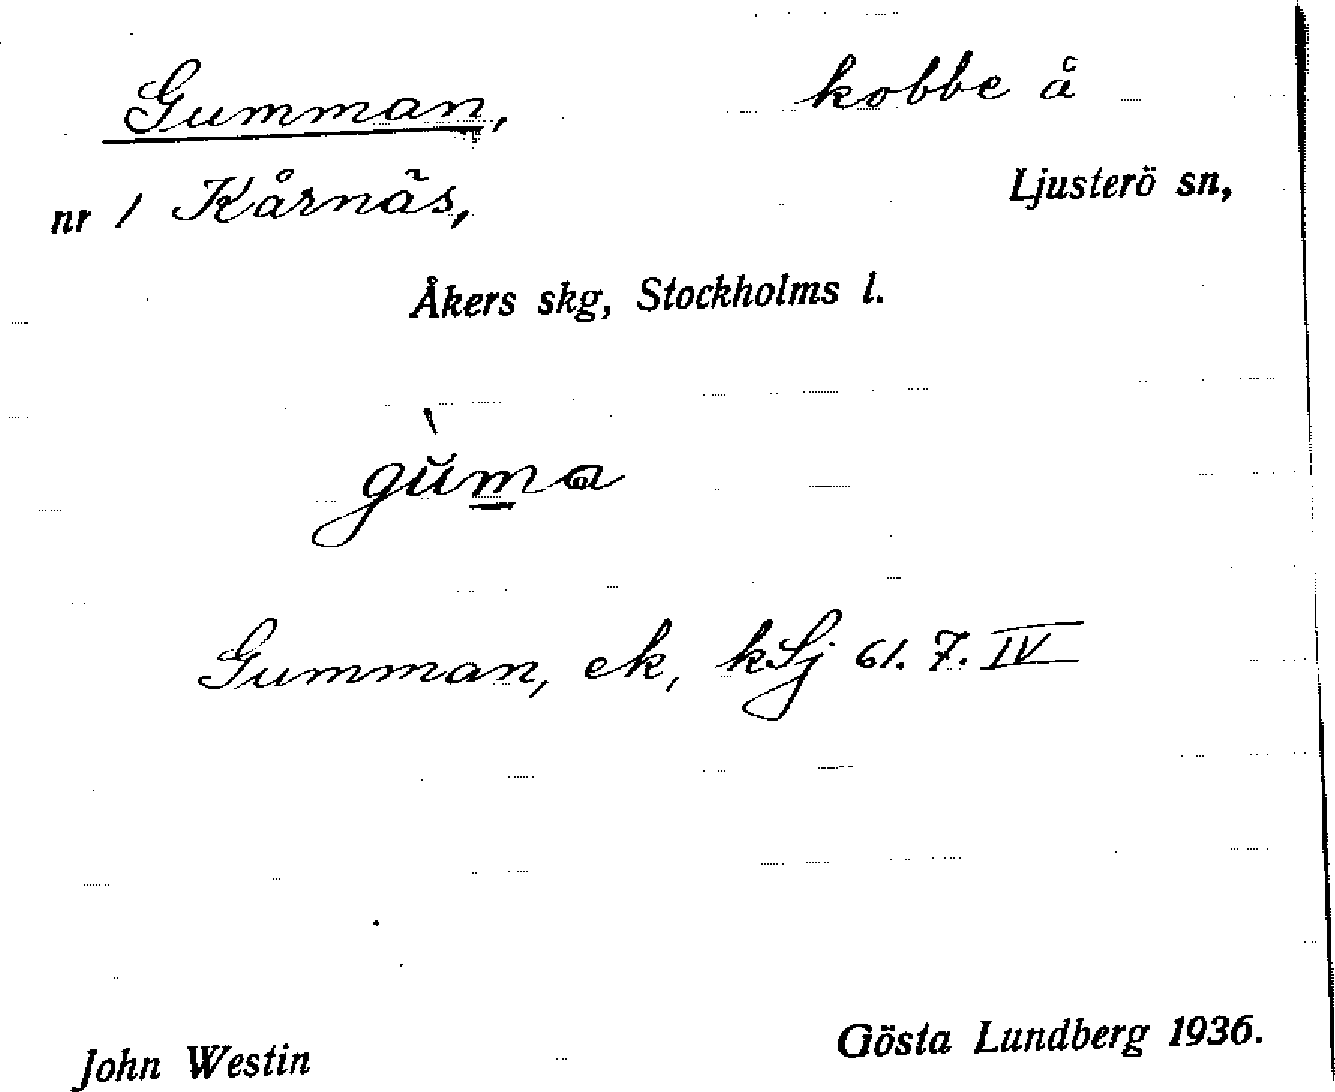 Gumman, kobbe å
nr 1 Kårnäs, Ljusterö sn,
Åkers skg, Stockholms l.
gùma
Gumman, ek, kSj 61. 7. IV
John Westin Gösta Lundberg 1936.